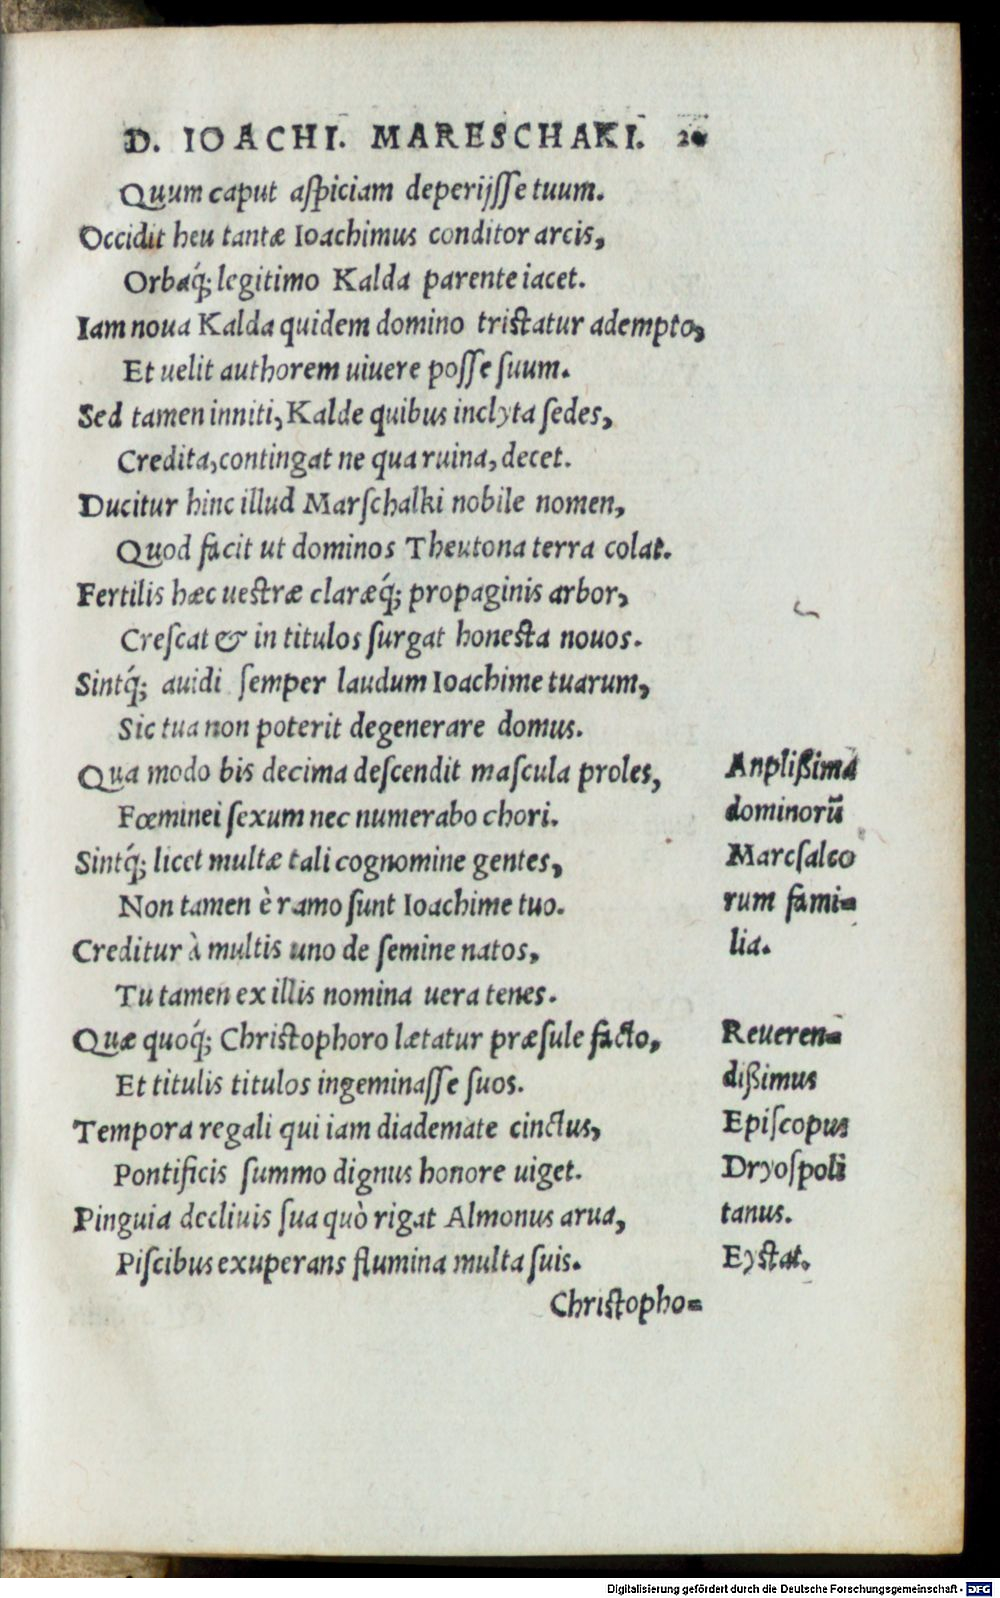 D. IOACHI. MARESCHAKI. 20
Quum caput aſpiciam deperijſſe tuum.
Occidit heu tantæ Ioachimus conditor arcis,
Orbaq́; legitimo Kalda parente iacet.
Iam noua Kalda quidem domino triſtatur adempto,
Et uelit authorem uiuere poſſe ſuum.
Sed tamen inniti, Kalde quibus inclyta ſedes,
Credita, contingat ne qua ruina, decet.
Ducitur hinc illud Marſchalki nobile nomen,
Quod facit ut dominos Theutona terra colat.
Fertilis hæc ueſtræ claræq́; propaginis arbor,
Creſcat & in titulos ſurgat honeſta nouos.
Sintq́; auidi ſemper laudum Ioachime tuarum,
Sic tua non poterit degenerare domus.
Qua modo bis decima deſcendit maſcula proles,
Fœminei ſexum nec numerabo chori.
Sintq́; licet multæ tali cognomine gentes,
Non tamen è ramo ſunt Ioachime tuo.
Creditur à multis uno de ſemine natos,
Tu tamen ex illis nomina uera tenes.
Quæ quoq́; Chriſtophoro lætatur præſule facto,
Et titulis titulos ingeminaſſe ſuos.
Tempora regali qui iam diademate cinctus,
Pontificis ſummo dignus honore uiget.
Pinguia decliuis ſua quò rigat Almonus arua,
Piſcibus exuperans flumina multa ſuis.
Chriſtopho-
Anplißima
dominorū
Marcſalco
rum fami-
lia.
Reueren-
dißimus
Epiſcopus
Dryoſpoli
tanus.
Eyſtat.
Digitalisierung gefördert durch die Deutsche Forschungsgemeinschaft - DFG